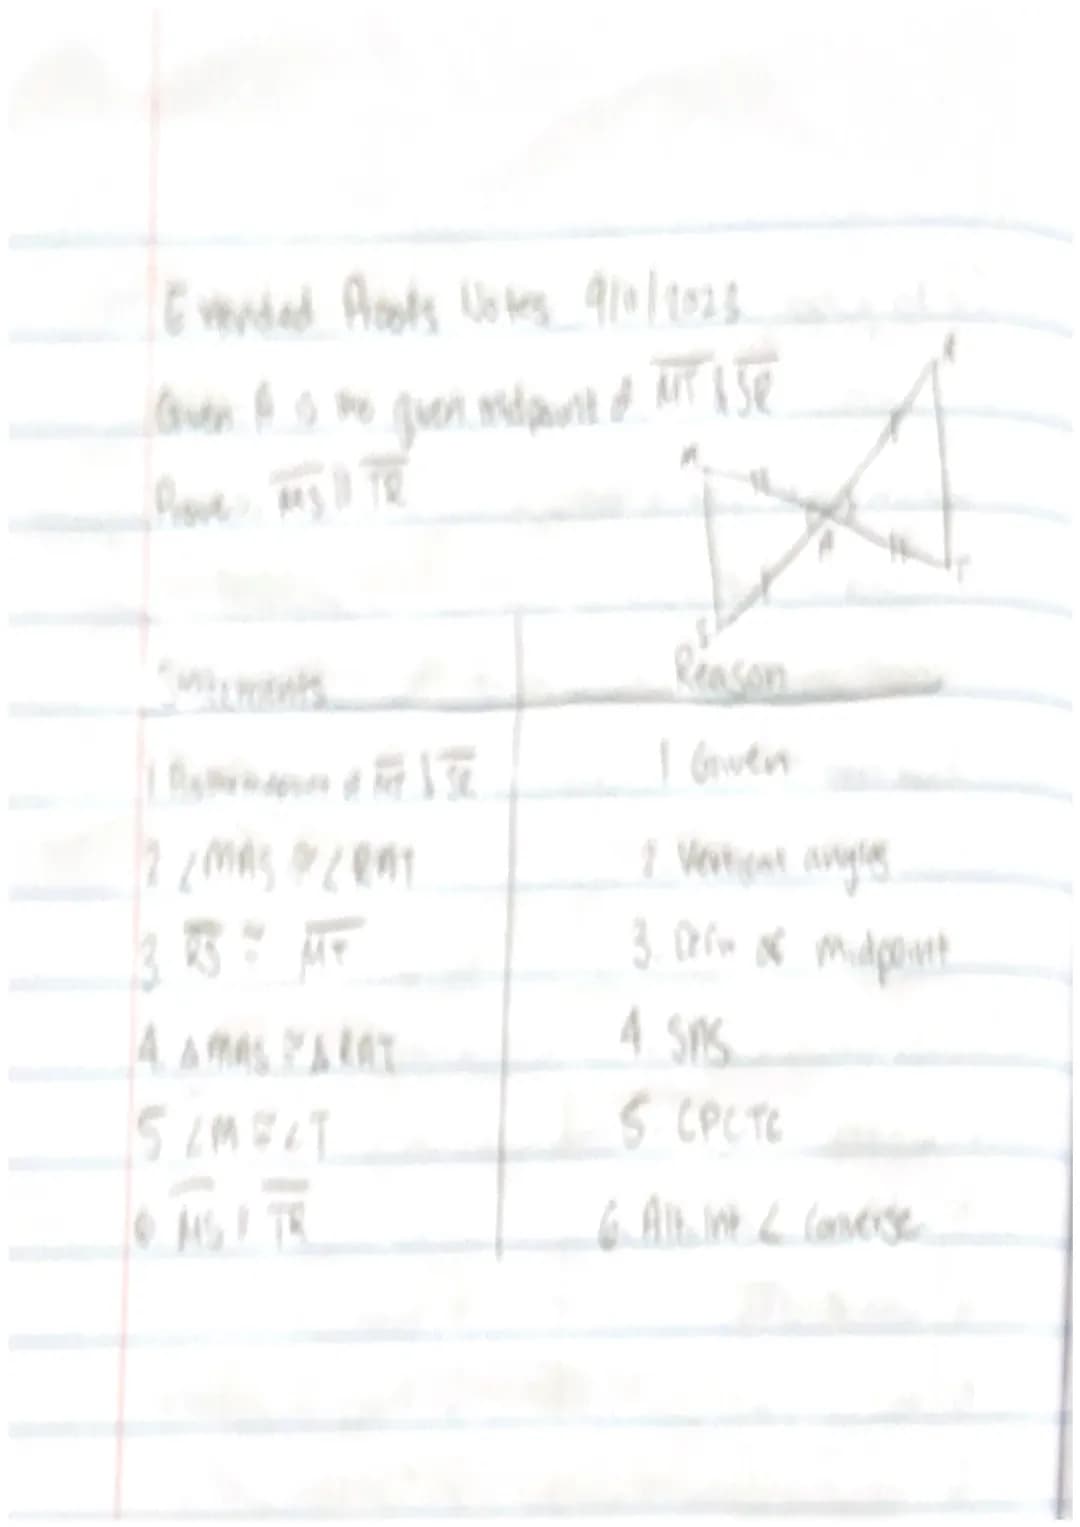 Extended Proofs Notes 9/11/2023
Given A is the given midpoint of MT & SR
Prove: MS || TR
R
M
A
T
S
Statements
Reason
1 A midpoint of MT & SR
1 Given
2 ∠MAS ≅ ∠RAT
2 Vertical angles
3. RS ≅ MT
3. Defn of Midpoint
4. △MAS ≅ △RAT
4 SAS
5 ∠M ≅ ∠T
5 CPCTC
6 MS || TR
6 Alt. Int ∠ Converse